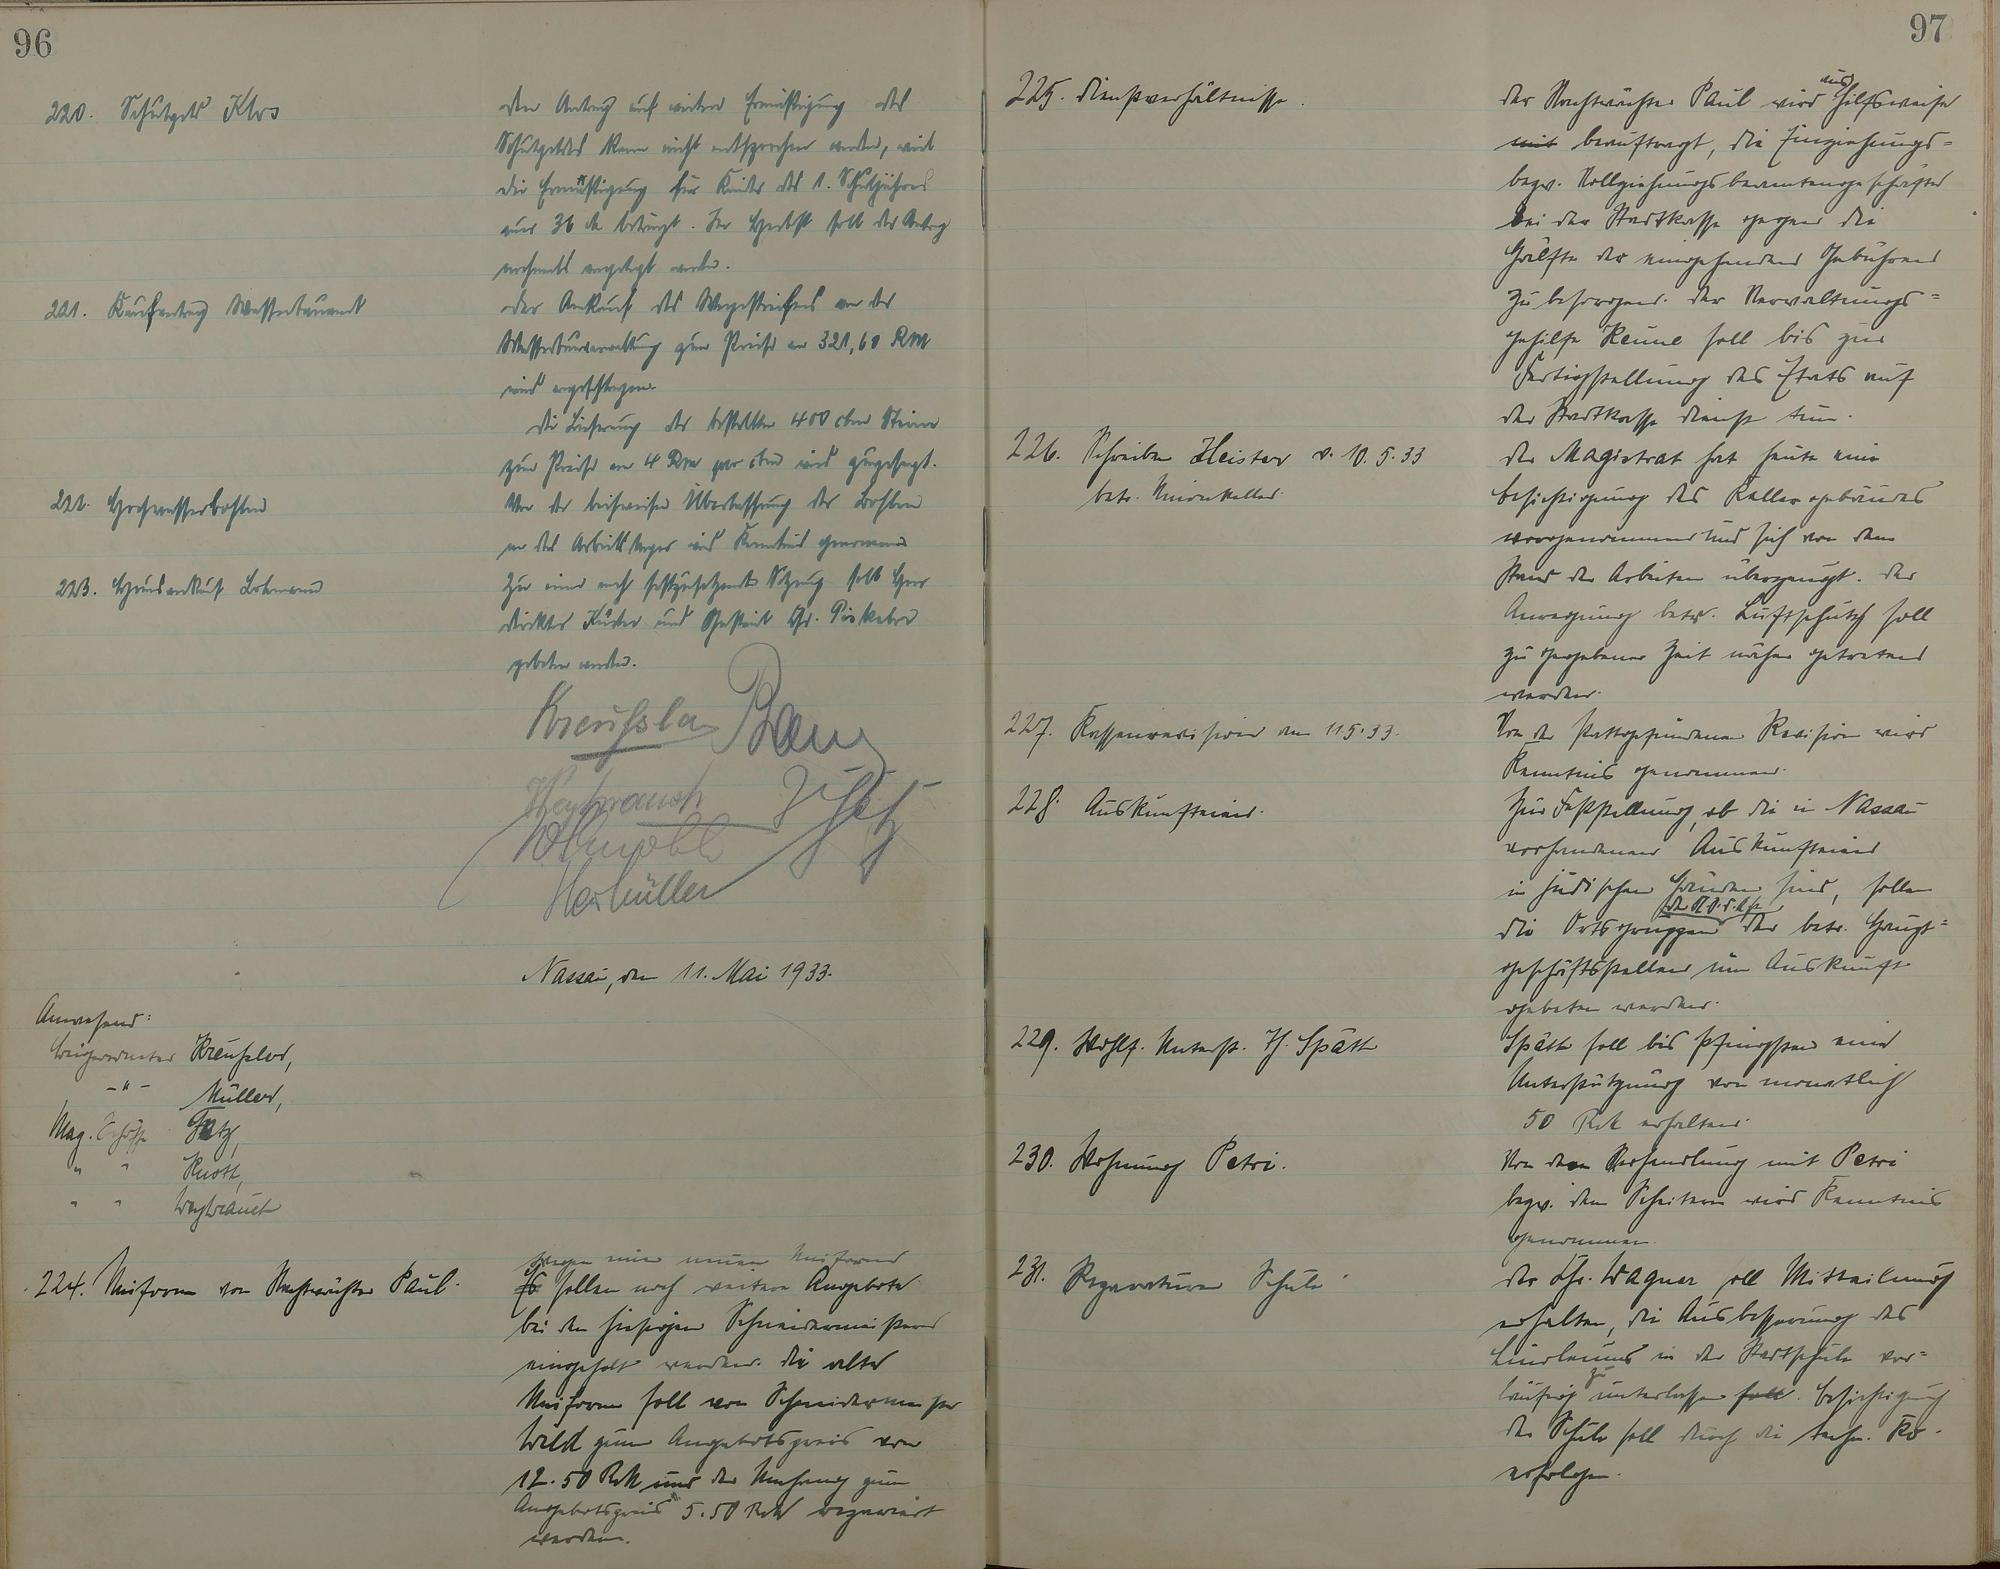 96
220. Schulgeld Klos
Der Antrag auf weitere Ermäßigung des
Schulgeldes kann nicht entsprochen werden, weil
die Ermäßigung für Kinder des 1. Schuljahres
nur 36 M beträgt. Im Herbst soll der Antrag
nochmals vorgelegt werden.
221. Kaufantrag Wasserbauamt
Der Ankauf des Wegestreifens von der
Wasserbauverwaltung zum Preise von 321,60 RM
wird
Die Lieferung der bestellten 400 cbm Steine
zum Preise von 4 RM pro cbm wird zugesagt.
222. Hochwasserbohlen
Von der leihweisen Überlassung der Bohlen
an das Arbeitslager wird Kenntnis genommen
223. Hausankauf
Zu einer noch festzusetzenden Sitzung soll Herr
Direktor Küster und
gebeten werden.
Kreussler
Weyhrauch
Müller
Nassau, den 11. Mai 1933.
Anwesend:
Beigeordneter Kreussler,
-"- Müller,
Mag. Schöffe
" " Knoth,
" " Weyhrauch
224. Uniform von Nachtwächter Paul.
Wegen einer neuen Uniform
Es sollen noch weitere Angebote
bei den hiesigen Schneidermeistern
eingeholt werden. Die alte
Uniform soll von Schneidermeister
Wild zum Angebotspreis von
12.50 RM und der Umhang zum
Angebotspreis 5.50 RM repariert
werden.
97
225. Dienstverhältnisse.
Der Nachtwächter Paul wird aushilfsweise
mit beauftragt, die Einziehungs-
bezw. Vollziehungsbeamtengeschäfte
bei der Stadtkasse gegen die
Hälfte der eingehenden Gebühren
zu besorgen. Der Verwaltungs-
gehilfe Keune soll bis zur
Fertigstellung des Etats auf
der Stadtkasse Dienst tun.
226. Schreiben Heister v. 10.5.33
betr. Unionkeller.
Der Magistrat hat heute eine
Besichtigung des Kellergebäudes
vorgenommen und sich von dem
Stand der Arbeiten überzeugt. Der
Anregung betr. Luftschutz soll
zu gegebener Zeit näher getreten
werden.
227. Kassenrevision am 11.5.33.
Von der stattgefundenen Revision wird
Kenntnis genommen.
228. Auskunfteien.
Zur Feststellung, ob die in Nassau
vorhandenen Auskunfteien
in jüdischen Händen sind, sollen
die Ortsgruppen der N.S.D.A.P. der betr. Haupt-
geschäftsstellen um Auskunft
gebeten werden.
229. Wohlf. Unterst. H. Späth
Späth soll bis Pfingsten eine
Unterstützung von monatlich
50 RM erhalten.
230. Wohnung Petri.
Von der Verhandlung mit Petri
bezw. dem Scheitern wird Kenntnis
genommen.
231. Reparaturen Schule
Der Fa. Wagner soll Mitteilung
erhalten, die Ausbesserung des
Linoleums in der Stadtschule vor-
läufig zu unterlassen soll. Besichtigung
der Schule soll durch die techn. Ko.
erfolgen.